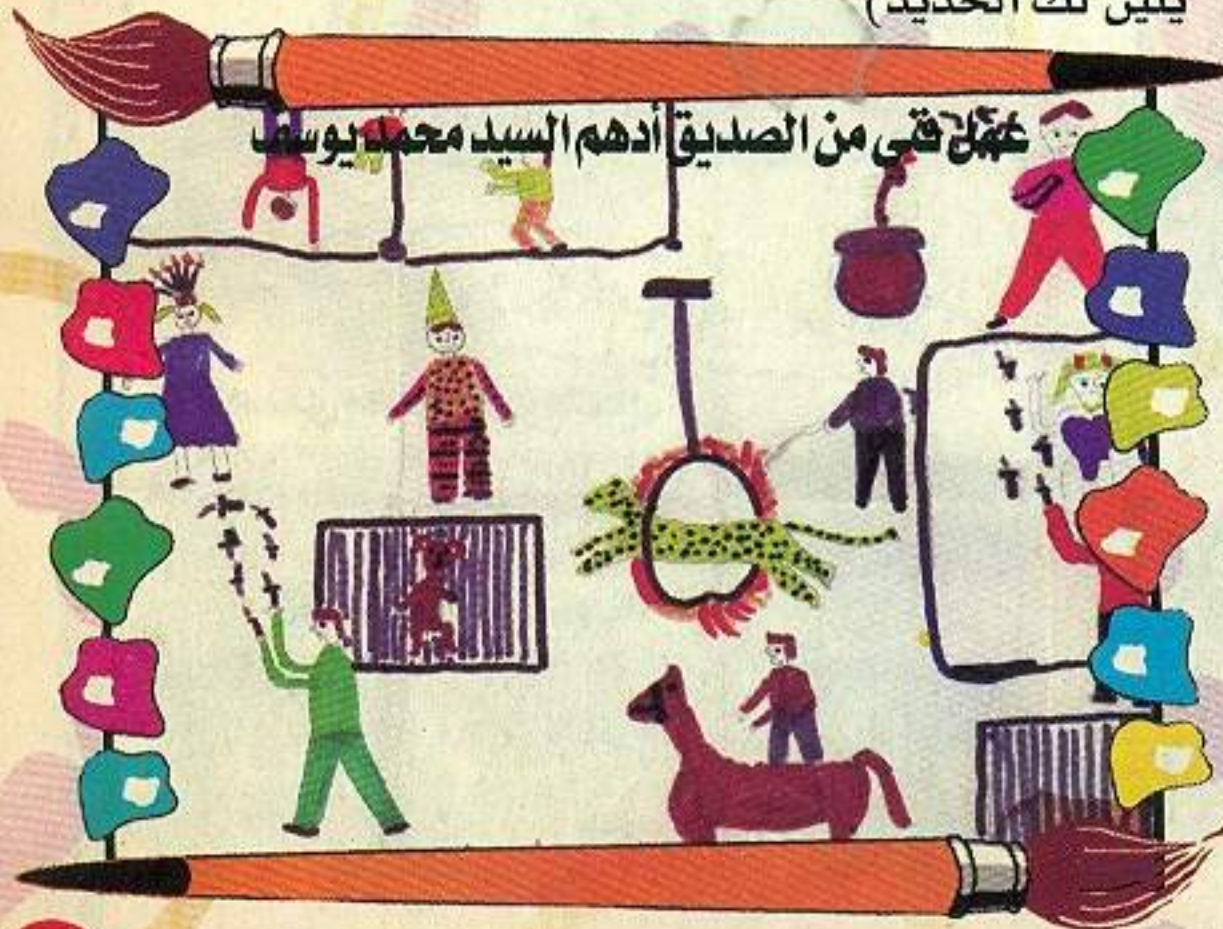 يلين لك الحديد)
عمل فني من الصديق أدهم السيد محمد يوسف